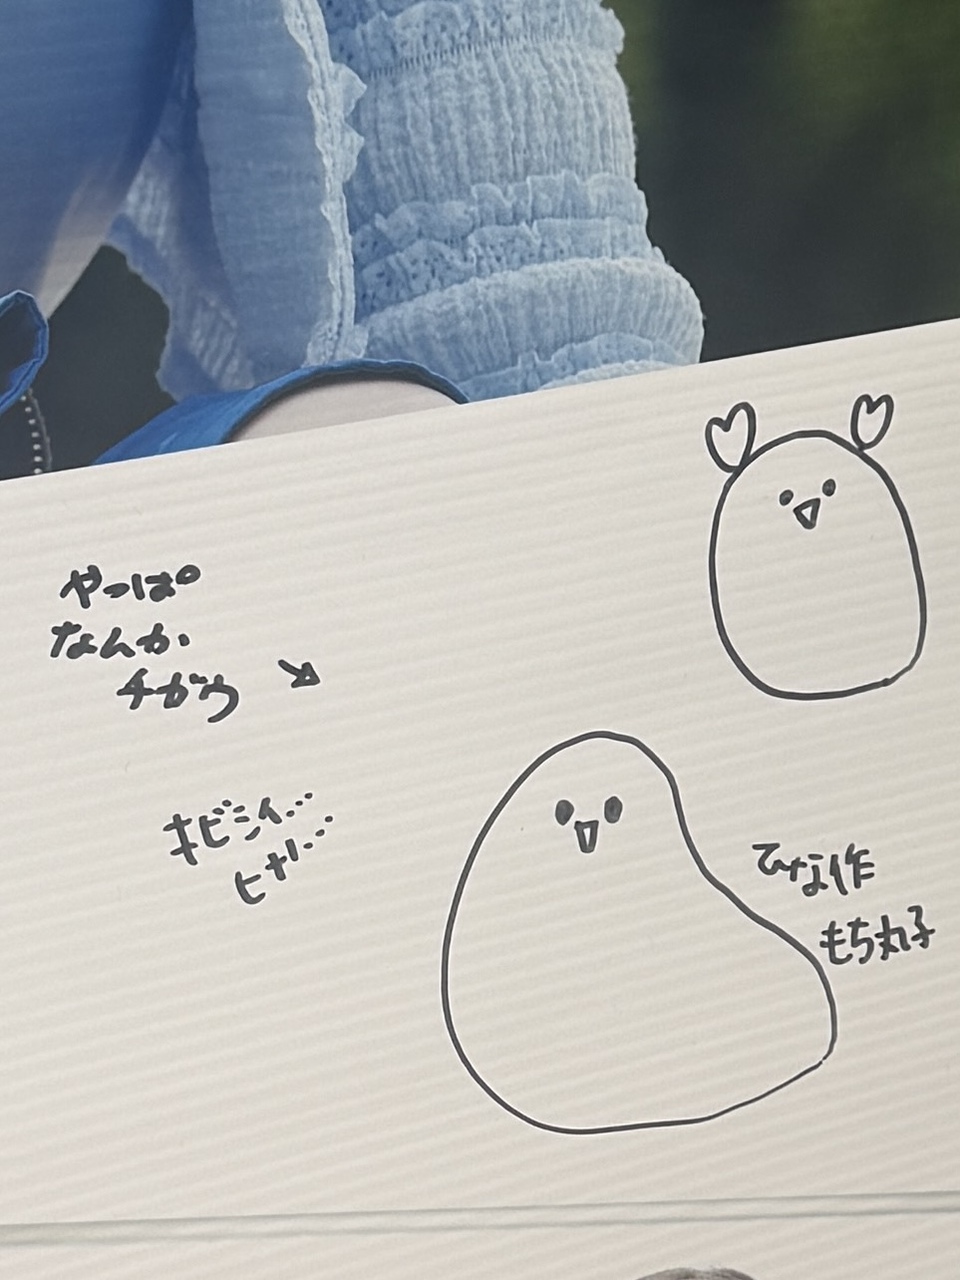 やっぱ
なんか
チガウ
キビシイ…
ヒナ…
ひな作
もち丸子